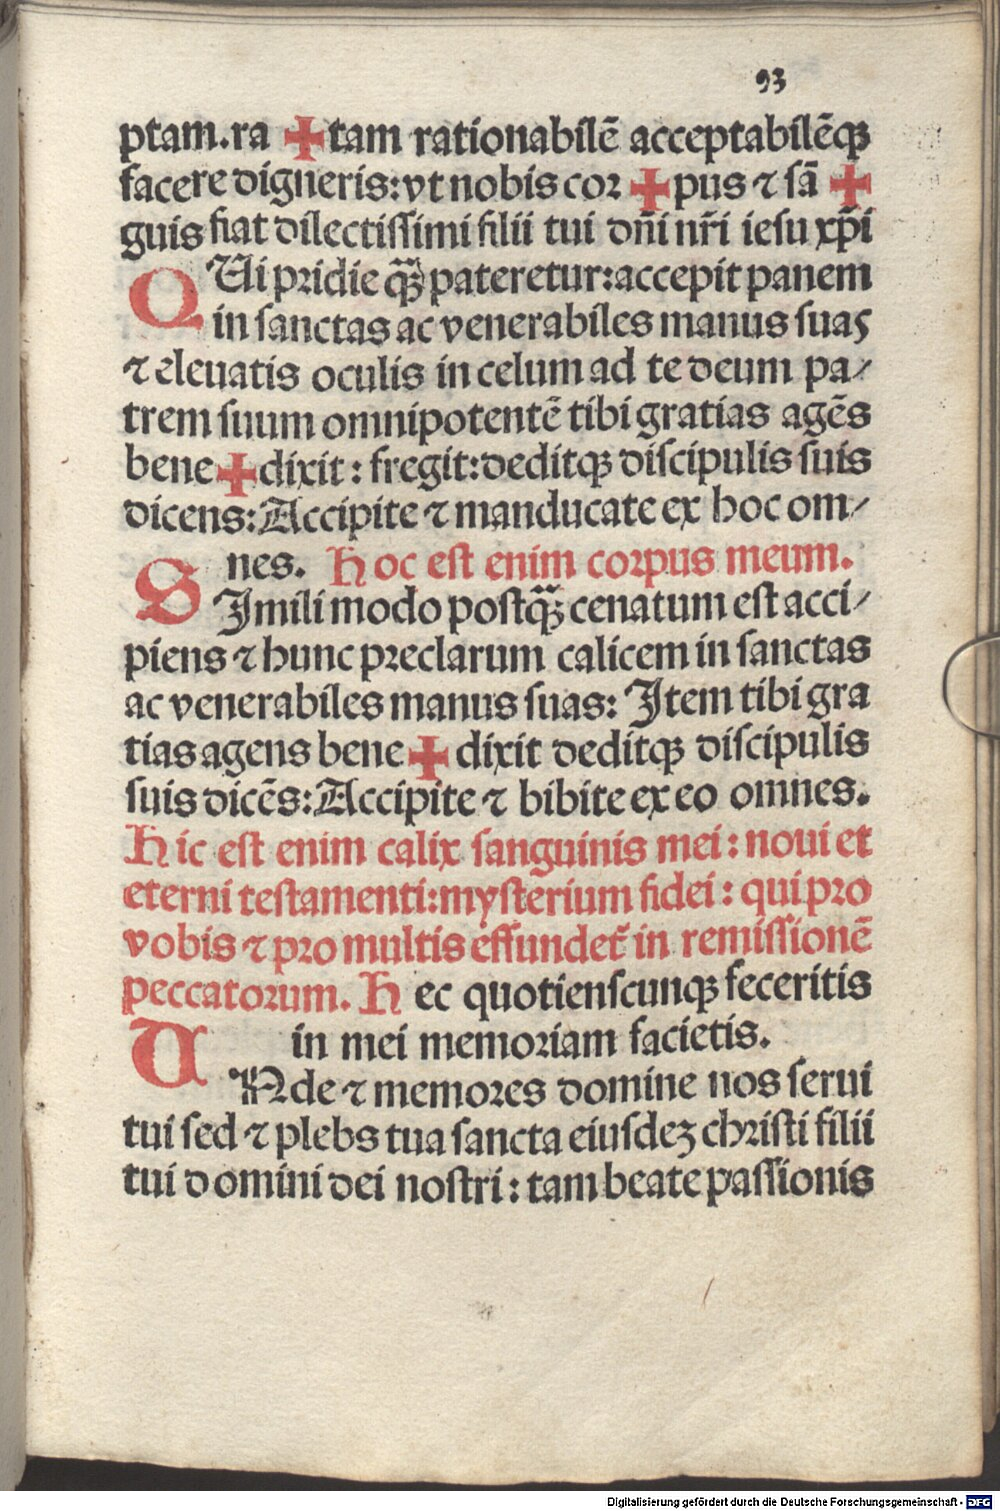 93
ptam.ra ✠ tam rationabilē acceptabilēqꝫ
facere digneris: vt nobis cor ✠ pus ⁊ sā ✠
guis fiat dilectissimi filii tui dn̄i nr̄i iesu xp̄i
QUi pridie qꝫ̈ pateretur: accepit panem
in sanctas ac venerabiles manus suas
⁊ eleuatis oculis in celum ad te deum pa/
trem suum omnipotentē tibi gratias agēs
bene ✠ dixit: fregit: deditqꝫ discipulis suis
dicens: Accipite ⁊ manducate ex hoc om/
nes. Hoc est enim corpus meum.
SImili modo postqꝫ̈ cenatum est acci/
piens ⁊ hunc preclarum calicem in sanctas
ac venerabiles manus suas: Item tibi gra
tias agens bene ✠ dixit deditqꝫ discipulis
suis dicēs: Accipite ⁊ bibite ex eo omnes.
Hic est enim calix sanguinis mei: noui et
eterni testamenti: mysterium fidei: qui pro
vobis ⁊ pro multis effundet̄ in remissionē
peccatorum. Hec quotienscunqꝫ feceritis
in mei memoriam facietis.
UNde ⁊ memores domine nos serui
tui sed ⁊ plebs tua sancta eiusdeꝫ christi filii
tui domini dei nostri: tam beate passionis
Digitalisierung gefördert durch die Deutsche Forschungsgemeinschaft - DFG